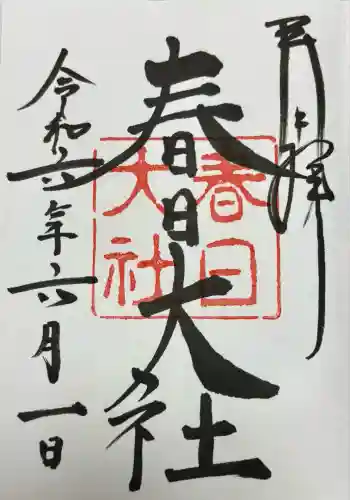 奉拝
春日大社
春日大社
令和六年六月一日